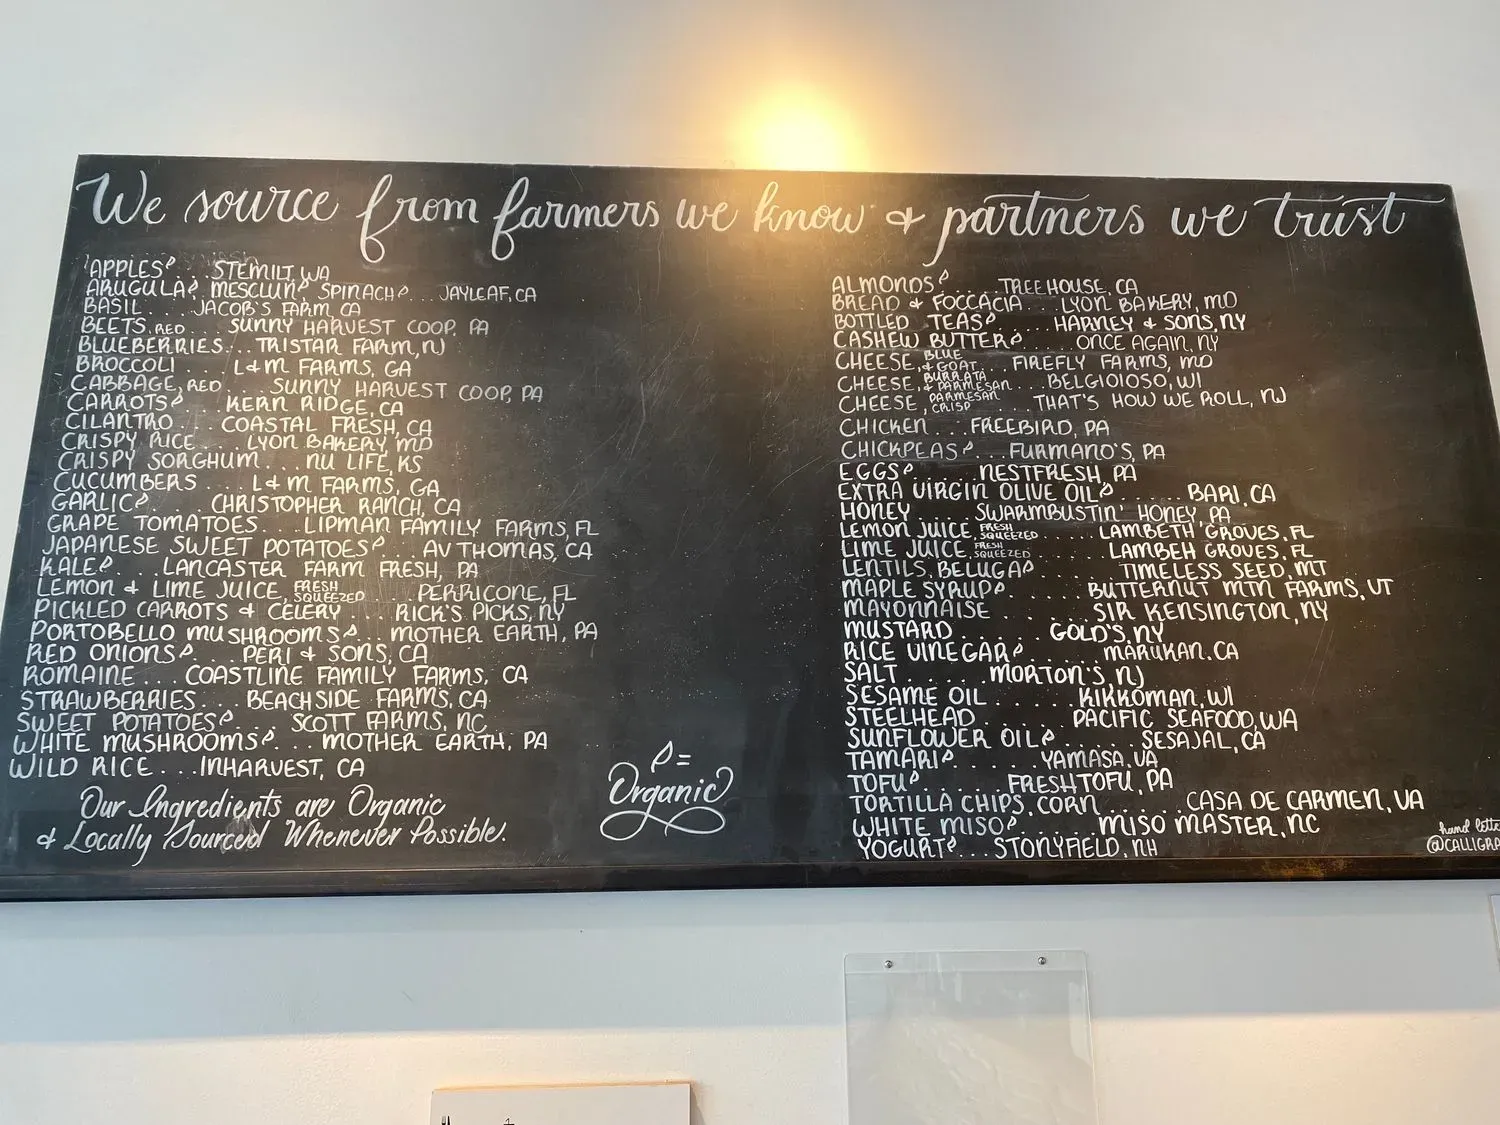 We source from farmers we know & partners we trust
APPLES... STEMILT, WA
ARUGULA, MESCLUN, SPINACH... JAYLEAF, CA
BASIL... JACOB'S FARM CA
BEETS, RED... SUNNY HARVEST COOP, PA
BLUEBERRIES... TRISTAR FARM, NJ
BROCCOLI... L&M FARMS, GA
CABBAGE, RED... SUNNY HARVEST COOP, PA
CARROTS... KERN RIDGE, CA
CILANTRO... COASTAL FRESH, CA
CRISPY RICE... LYON BAKERY, MD
CRISPY SORGHUM... NU LIFE, KS
CUCUMBERS... L&M FARMS, GA
GARLIC... CHRISTOPHER RANCH, CA
GRAPE TOMATOES... LIPMAN FAMILY FARMS, FL
JAPANESE SWEET POTATOES... AV THOMAS, CA
KALE... LANCASTER FARM FRESH, PA
LEMON & LIME JUICE, FRESH SQUEEZED... PERRICONE, FL
PICKLED CARROTS & CELERY... RICK'S PICKS, NY
PORTOBELLO MUSHROOMS... MOTHER EARTH, PA
RED ONIONS... PERI & SONS, CA
ROMAINE... COASTLINE FAMILY FARMS, CA
STRAWBERRIES... BEACHSIDE FARMS, CA
SWEET POTATOES... SCOTT FARMS, NC
WHITE MUSHROOMS... MOTHER EARTH, PA
WILD RICE... INHARVEST, CA
Our Ingredients are Organic
& Locally Sourced Whenever Possible.
= Organic
ALMONDS... TREEHOUSE, CA
BREAD & FOCCACIA... LYON BAKERY, MD
BOTTLED TEAS... HARNEY & SONS, NY
CASHEW BUTTER... ONCE AGAIN, NY
CHEESE, BLUE & GOAT... FIREFLY FARMS, MD
CHEESE, BURRATA & PARMESAN... BELGIOIOSO, WI
CHEESE, PARMESAN CRISP... THAT'S HOW WE ROLL, NJ
CHICKEN... FREEBIRD, PA
CHICKPEAS... FURMANO'S, PA
EGGS... NESTFRESH, PA
EXTRA VIRGIN OLIVE OIL... BARI, CA
HONEY... SWARMBUSTIN' HONEY, PA
LEMON JUICE, FRESH SQUEEZED... LAMBETH GROVES, FL
LIME JUICE, FRESH SQUEEZED... LAMBEH GROVES, FL
LENTILS, BELUGA... TIMELESS SEED, MT
MAPLE SYRUP... BUTTERNUT MTN FARMS, VT
MAYONNAISE... SIR KENSINGTON, NY
MUSTARD... GOLD'S, NY
RICE VINEGAR... MARUKAN, CA
SALT... MORTON'S, NJ
SESAME OIL... KIKKOMAN, WI
STEELHEAD... PACIFIC SEAFOOD, WA
SUNFLOWER OIL... SESAJAL, CA
TAMARI... YAMASA, VA
TOFU... FRESHTOFU, PA
TORTILLA CHIPS, CORN... CASA DE CARMEN, VA
WHITE MISO... MISO MASTER, NC
YOGURT... STONYFIELD, NH
hand